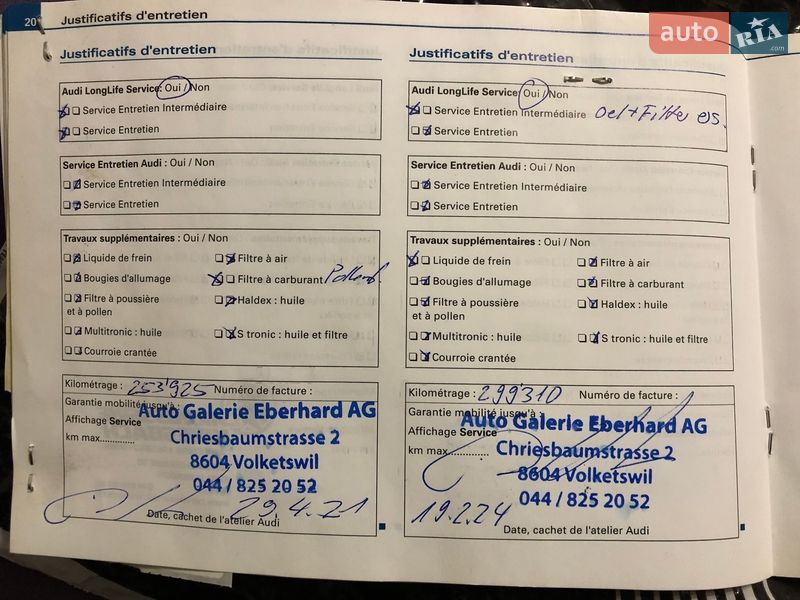 20
Justificatifs d'entretien
Justificatifs d'entretien
Audi LongLife Service: Oui / Non
Service Entretien Intermédiaire
Service Entretien
Service Entretien Audi : Oui / Non
Service Entretien Intermédiaire
Service Entretien
Travaux supplémentaires : Oui / Non
Liquide de frein
Filtre à air
Bougies d'allumage
Filtre à carburant
Filtre à poussière
et à pollen
Haldex : huile
Multitronic : huile
S tronic : huile et filtre
Courroie crantée
Kilométrage : 253'925 Numéro de facture :
Garantie mobilité jusqu'à :
Auto Galerie Eberhard AG
Affichage Service
Chriesbaumstrasse 2
km max.............
8604 Volketswil
044 / 825 20 52
29.4.21
Date, cachet de l'atelier Audi
Justificatifs d'entretien
Audi LongLife Service: Oui / Non
Service Entretien Intermédiaire Oel + Filter
Service Entretien
Service Entretien Audi : Oui / Non
Service Entretien Intermédiaire
Service Entretien
Travaux supplémentaires : Oui / Non
Liquide de frein
Filtre à air
Bougies d'allumage
Filtre à carburant
Filtre à poussière
et à pollen
Haldex : huile
Multitronic : huile
S tronic : huile et filtre
Courroie crantée
Kilométrage : 299310 Numéro de facture :
Garantie mobilité jusqu'à :
Auto Galerie Eberhard AG
Affichage Service
Chriesbaumstrasse 2
km max.............
8604 Volketswil
044 / 825 20 52
19.2.24
Date, cachet de l'atelier Audi
auto RIA .com